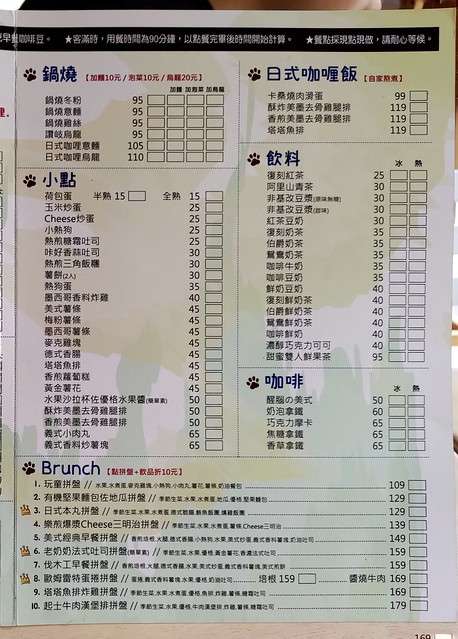 早餐咖啡豆。 ★客滿時，用餐時間為90分鐘，以點餐完畢後時間開始計算。 ★餐點採現點現做，請耐心等候。
鍋燒【加麵10元 / 泡菜10元 / 烏龍20元】
加麵 加泡菜 加烏龍
鍋燒冬粉 95
鍋燒意麵 95
鍋燒雞絲 95
讚岐烏龍 95
日式咖哩意麵 105
日式咖哩烏龍 110
小點
荷包蛋 半熟 15 全熟 15
玉米炒蛋 25
Cheese炒蛋 25
小熱狗 25
熱煎糖霜吐司 25
咔好香蒜吐司 30
熱煎三角飯糰 30
薯餅(2入) 30
熱狗蛋 35
墨西哥香料炸雞 40
美式薯條 45
梅粉薯條 45
墨西哥薯條 45
麥克雞塊 45
德式香腸 45
塔塔魚排 45
香煎蘿蔔糕 45
黃金薯花 45
水果沙拉杯佐優格水果醬(糖果素) 50
酥炸美墨去骨雞腿排 50
香煎美墨去骨雞腿排 50
義式小肉丸 65
義式香料炒薯塊 65
日式咖喱飯【自家熬煮】
卡桑燒肉滑蛋 99
酥炸美墨去骨雞腿排 119
香煎美墨去骨雞腿排 119
塔塔魚排 119
飲料
冰 熱
復刻紅茶 25
阿里山青茶 30
非基改豆漿(原味無糖) 30
非基改豆漿(甜味) 30
紅茶豆奶 30
復刻奶茶 35
伯爵奶茶 35
鴛鴦奶茶 35
咖啡牛奶 35
咖啡豆奶 35
鮮奶豆奶 40
復刻鮮奶茶 40
伯爵鮮奶茶 40
鴛鴦鮮奶茶 40
咖啡鮮奶 40
濃醇巧克力可可 40
甜蜜雙人鮮果茶 95
咖啡
冰 熱
醒腦の美式 50
奶泡拿鐵 60
巧克力摩卡 65
焦糖拿鐵 65
香草拿鐵 65
Brunch【點拼盤+飲品折10元】
1. 玩童拼盤 // 水果,水煮蛋,麥克雞塊,小熱狗,小肉丸,薯花,薯條,奶油餐包 109
2. 有機堅果麵包佐地瓜拼盤 // 季節生菜,水果,水煮蛋,地瓜,優格,堅果麵包 129
3. 日式本丸拼盤 // 129
4. 樂煎爆漿Cheese三明治拼盤 // 季節生菜,水果,水煮蛋,薯條,Cheese三明治 139
5. 美式經典早餐拼盤 // 149
6. 老奶奶法式吐司拼盤(糖果素) // 季節生菜,水果,優格,黃金薯花,香濃法式吐司 159
7. 伐木工早餐拼盤 // 159
8. 歐姆雷特蛋捲拼盤 // 蛋捲,義式香料薯塊,水果,優格,奶油吐司 培根 159 醬燒牛肉 169
9. 塔塔魚排炸雞拼盤 // 季節生菜,水果,水煮蛋,優格,魚排,炸雞,薯條,糖霜吐司 169
10. 起士牛肉漢堡排拼盤 // 季節生菜,水果,優格,牛肉漢堡排,炸雞,薯條,糖霜吐司 179
169